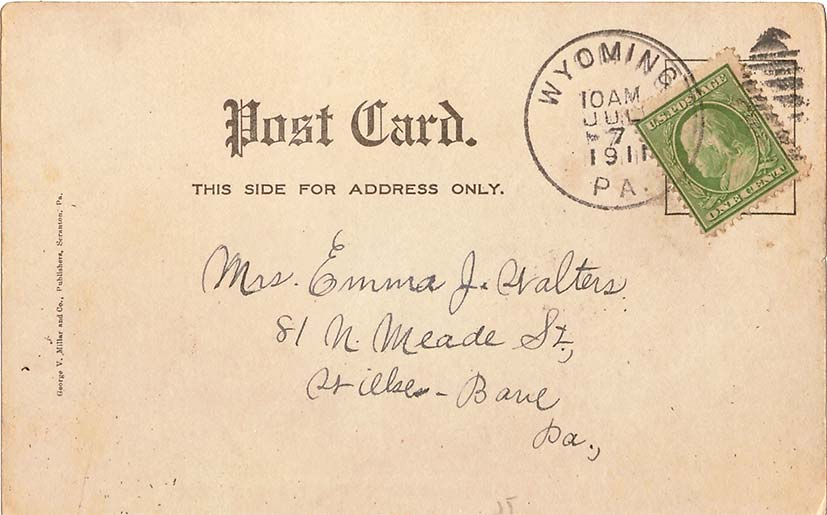 Post Card.
THIS SIDE FOR ADDRESS ONLY.
WYOMING
10 AM
JUL
7
1911
PA.
U.S. POSTAGE
ONE CENT
Mrs. Emma J. Walters
81 N. Meade St.,
Wilkes-Barre
Pa.,
George V. Millar and Co., Publishers, Scranton, Pa.
15